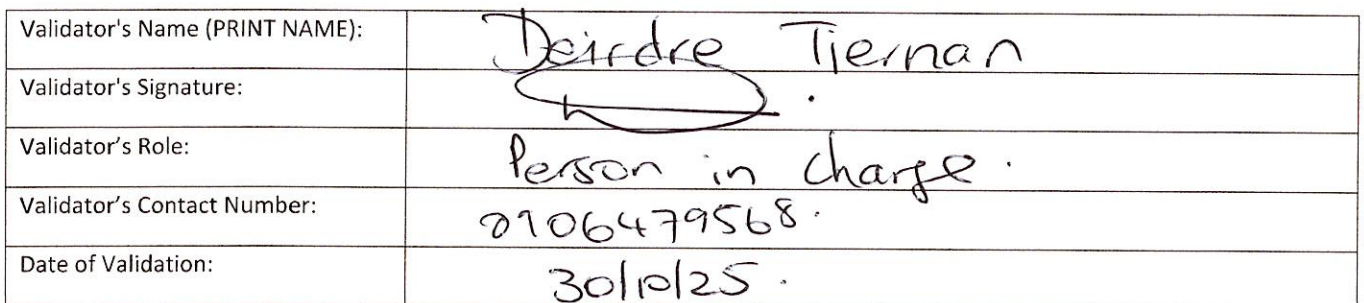 Validator's Name (PRINT NAME): Deirdre Tiernan
Validator's Signature:
Validator's Role: Person in charge.
Validator's Contact Number: 0106479568.
Date of Validation: 30/10/25.